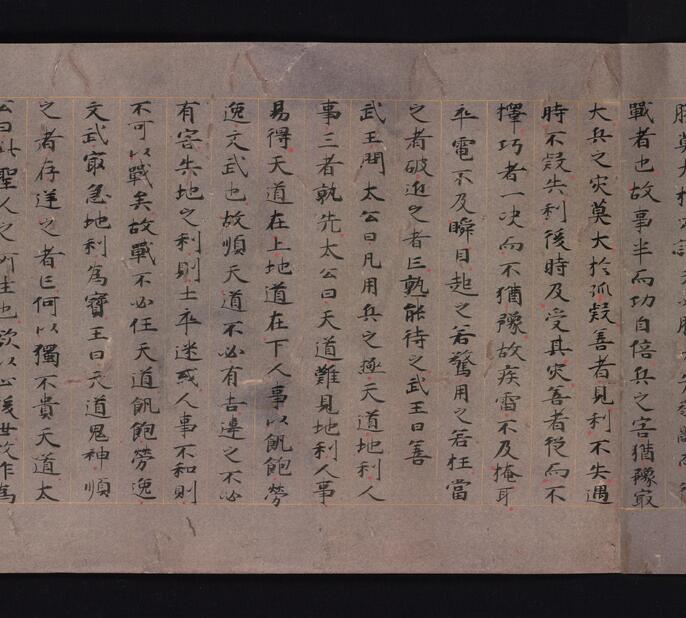 戰者也故事半而功自倍兵之害猶豫㝡
大兵之灾莫大於狐疑善者見利不失遇
時不疑失利後時及受其灾善者從而不
擇巧者一决而不猶豫故疾雷不及掩耳
卒電不及瞬目起之若驚用之若狂當
之者破近之者亡孰能待之武王曰善
武王問太公曰凡用兵之極天道地利人
事三者孰先太公曰天道難見地利人事
易得天道在上地道在下人事以飢飽勞
逸文武也故順天道不必有吉違之不必
有害失地之利則士卒迷惑人事不和則
不可以戰矣故戰不必任天道飢飽勞逸
文武㝡急地利為寶王曰天道鬼神順
之者存逆之者亡何以獨不貴天道太
公曰此聖人之所生也欲以止後世故作為